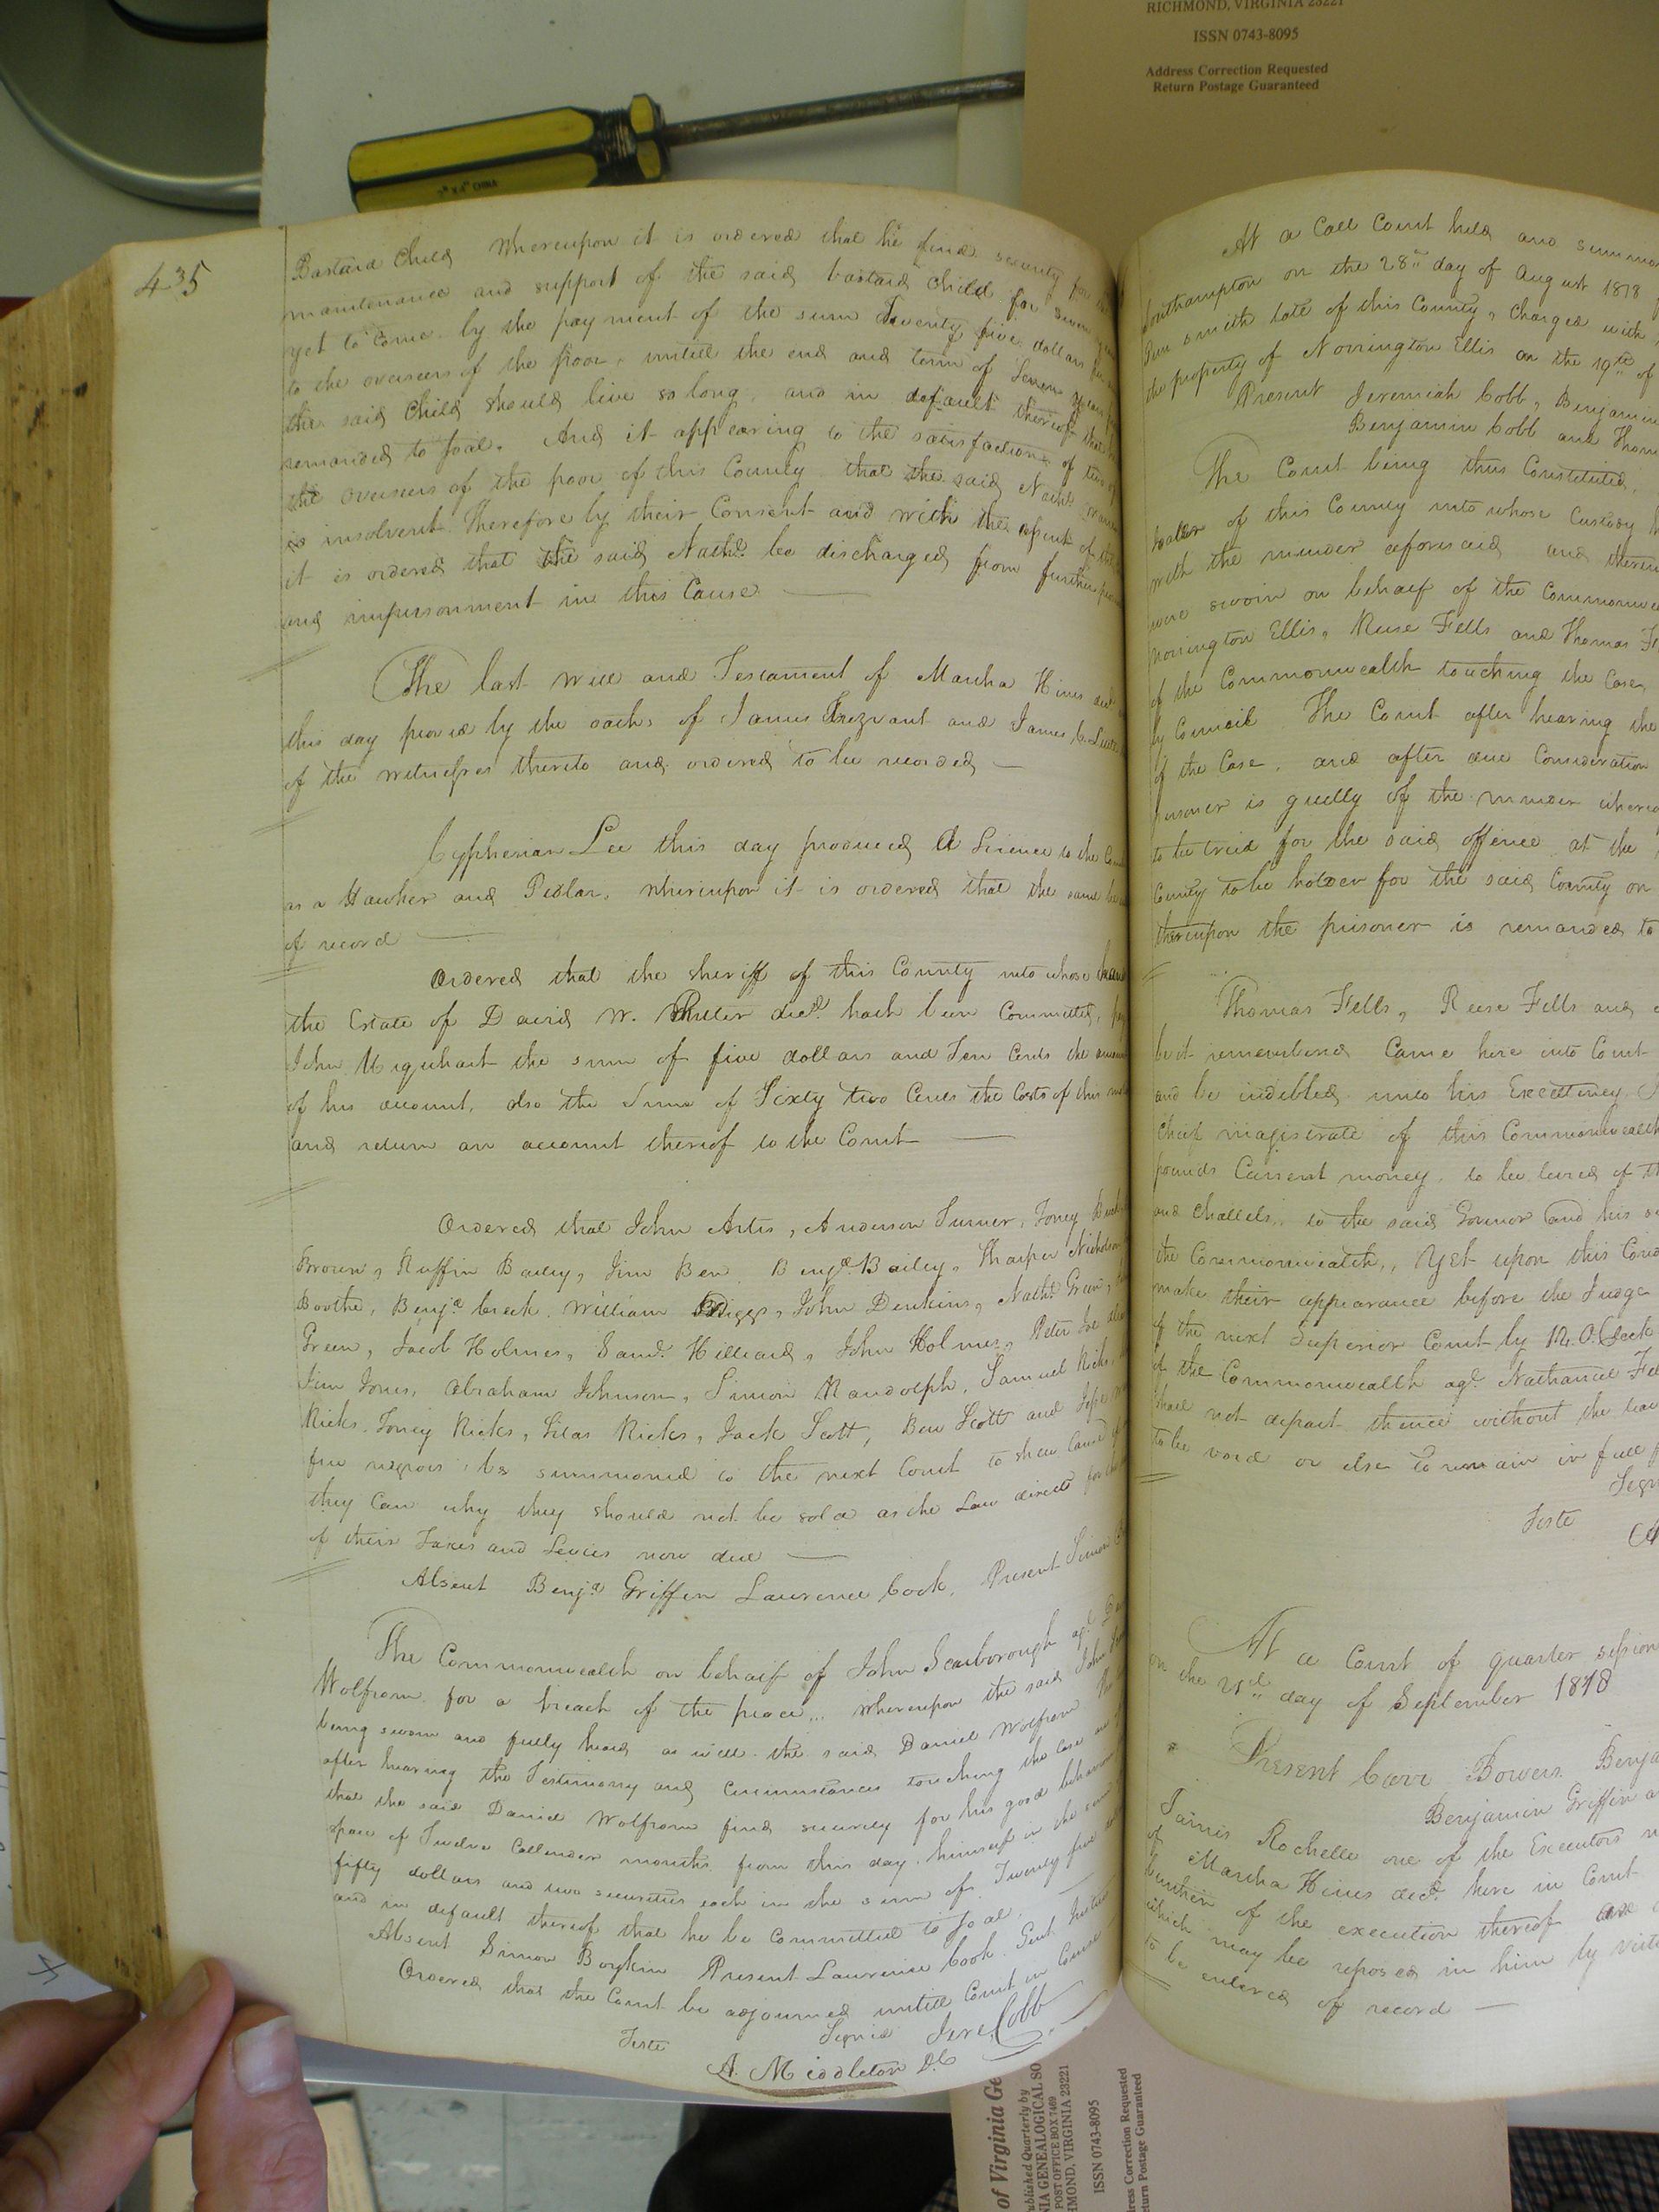 RICHMOND, VIRGINIA 23221
ISSN 0743-8095
Address Correction Requested
Return Postage Guaranteed
435
Bastard Child Whereupon it is ordered that he find security for
maintenance and support of the said bastard child for seven
yet to come by the payment of the sum Twenty five dollars
to the overseers of the poor, untill the end and term of Seven years
the said Child should live so long, and in default thereof that
remanded to Joal. And it appearing to the satisfaction of two
the overseers of the poor of this County that the said Nathl.
is insolvent Therefore by their Consent and with the assent of the
it is ordered that the said Nathl. be discharged from further
and imprisonment in this Cause
The last Will and Testament of Martha Hines
this day proved by the oaths of James Trezvant and James
of the witnesses thereto and ordered to be recorded
Cypherian Lee this day produced A Licence to the
as a Hawker and Pedlar, whereupon it is ordered that the same
of record
Ordered that the sheriff of this County into whose
the Estate of David W. decd. hath been Committed,
John Urquhart the sum of five dollars and Ten Cents the
of his account, also the Sum of Sixty two Cents the Costs of this
and return an account thereof to the Court
Ordered that John Artis, Anderson Turner, Toney
Brown, Ruffin Bailey, Jim Ben, Benja. Bailey, Sharper Nicholson
Boothe, Benja. Creek, William Diggs, John Denkins, Nathl. Green,
Green, Jacob Holmes, Saml. Hilliard, John Holmes, Peter Joe
Jim Jones, Abraham Johnson, Simon Randolph, Samuel Ricks,
Ricks, Toney Ricks, Silas Ricks, Jack Scott, Ben Scott and
free negroes be summoned to the next Court to shew Cause
they Can why they should not be sold as the Law directs for the
of their Taxes and Levies now due
Absent Benja. Griffin Laurence Cook, Present Simon
The Commonwealth on behalf of John Scarborough agt.
Wolfrom for a breach of the peace... Whereupon the said John
being sworn and fully heard as well the said Daniel Wolfrom
after hearing the Testimony and Circumstances touching the case
that the said Daniel Wolfrom find security for his good behavior
space of Twelve Callender months from this day himself in the sum
fifty dollars and two securities each in the sum of Twenty five
and in default thereof that he be Committed to Joal.
Absent Simon Boykin Present Laurence Cook Gent. Justice
Ordered that the Court be adjourned untill Court in Course
Signed Jere. Cobb
Teste
A. Middleton D.C
At a Call Court held and
Southampton on the 28th day of August 1818
smith late of this County, Charged with
the property of Norrington Ellis on the 19th of
Present Jeremiah Cobb, Benjamin
Benjamin Cobb and
The Court being thus Constituted,
of this County into whose Custody
with the murder aforesaid and
were sworn on behalf of the
Norrington Ellis, Reese Fells and Thomas
of the Commonwealth touching the Case,
by Council The Court after hearing the
of the Case, and after due Consideration
prisoner is guilty of the murder
to be tried for the said offence at the
County to be holden for the said County on
thereupon the prisoner is remanded to
Thomas Fells, Reese Fells and
be it remembered Came here into Court
and be indebted unto his Excellency
chief magistrate of this Commonwealth
pounds Current money to be levied of
and Chattels, to the said Govenor and his
the Commonwealth, Yet upon this
make their appearance before the Judge
of the next Superior Court by 12 O.Clock
of the Commonwealth agt. Nathaniel
shall not depart thence without the
to be void or else to remain in full
Teste
At a Court of quarter session
on the 21st day of September 1818
Present Carr Bowers Benja
Benjamin Griffin
James Rochelle one of the Executors
of Martha Hines decd. here in Court
burthen of the execution thereof
which may be reposed in him by
to be entered of record
of Virginia
Published Quarterly by
GENEALOGICAL
POST OFFICE BOX 7469
RICHMOND, VIRGINIA 23221
ISSN 0743-8095
Address Correction Requested
Return Postage Guaranteed